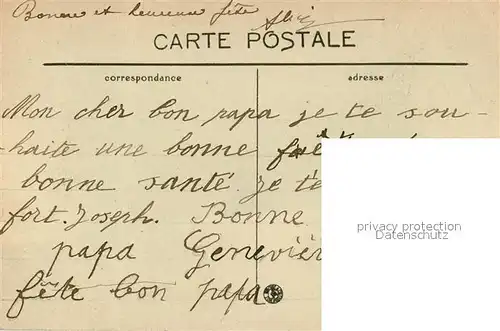 Bonne et heureuse fête
Alice
CARTE POSTALE
correspondance
adresse
Mon cher bon papa je te sou-
-haite une bonne
bonne santé. Je t'e
fort. Joseph. Bonne
papa Geneviè
fête bon papa
privacy protection
Datenschutz